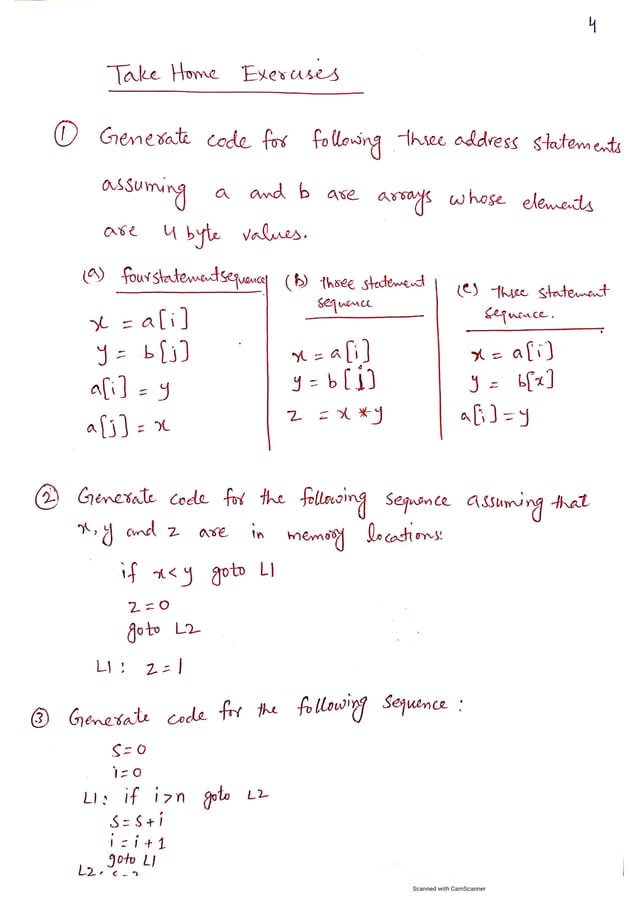 4
Take Home Exercises
① Generate code for following three address statements
assuming a and b are arrays whose elements
are 4 byte values.
(a) four statement sequence
x = a[i]
y = b[j]
a[i] = y
a[j] = x
(b) three statement
sequence
x = a[i]
y = b[j]
z = x * y
(c) Three statement
sequence.
x = a[i]
y = b[x]
a[i] = y
② Generate code for the following sequence assuming that
x, y and z are in memory locations:
if x < y goto L1
z = 0
goto L2
L1: z = 1
③ Generate code for the following sequence:
s = 0
i = 0
L1: if i > n goto L2
s = s + i
i = i + 1
goto L1
L2:
Scanned with CamScanner